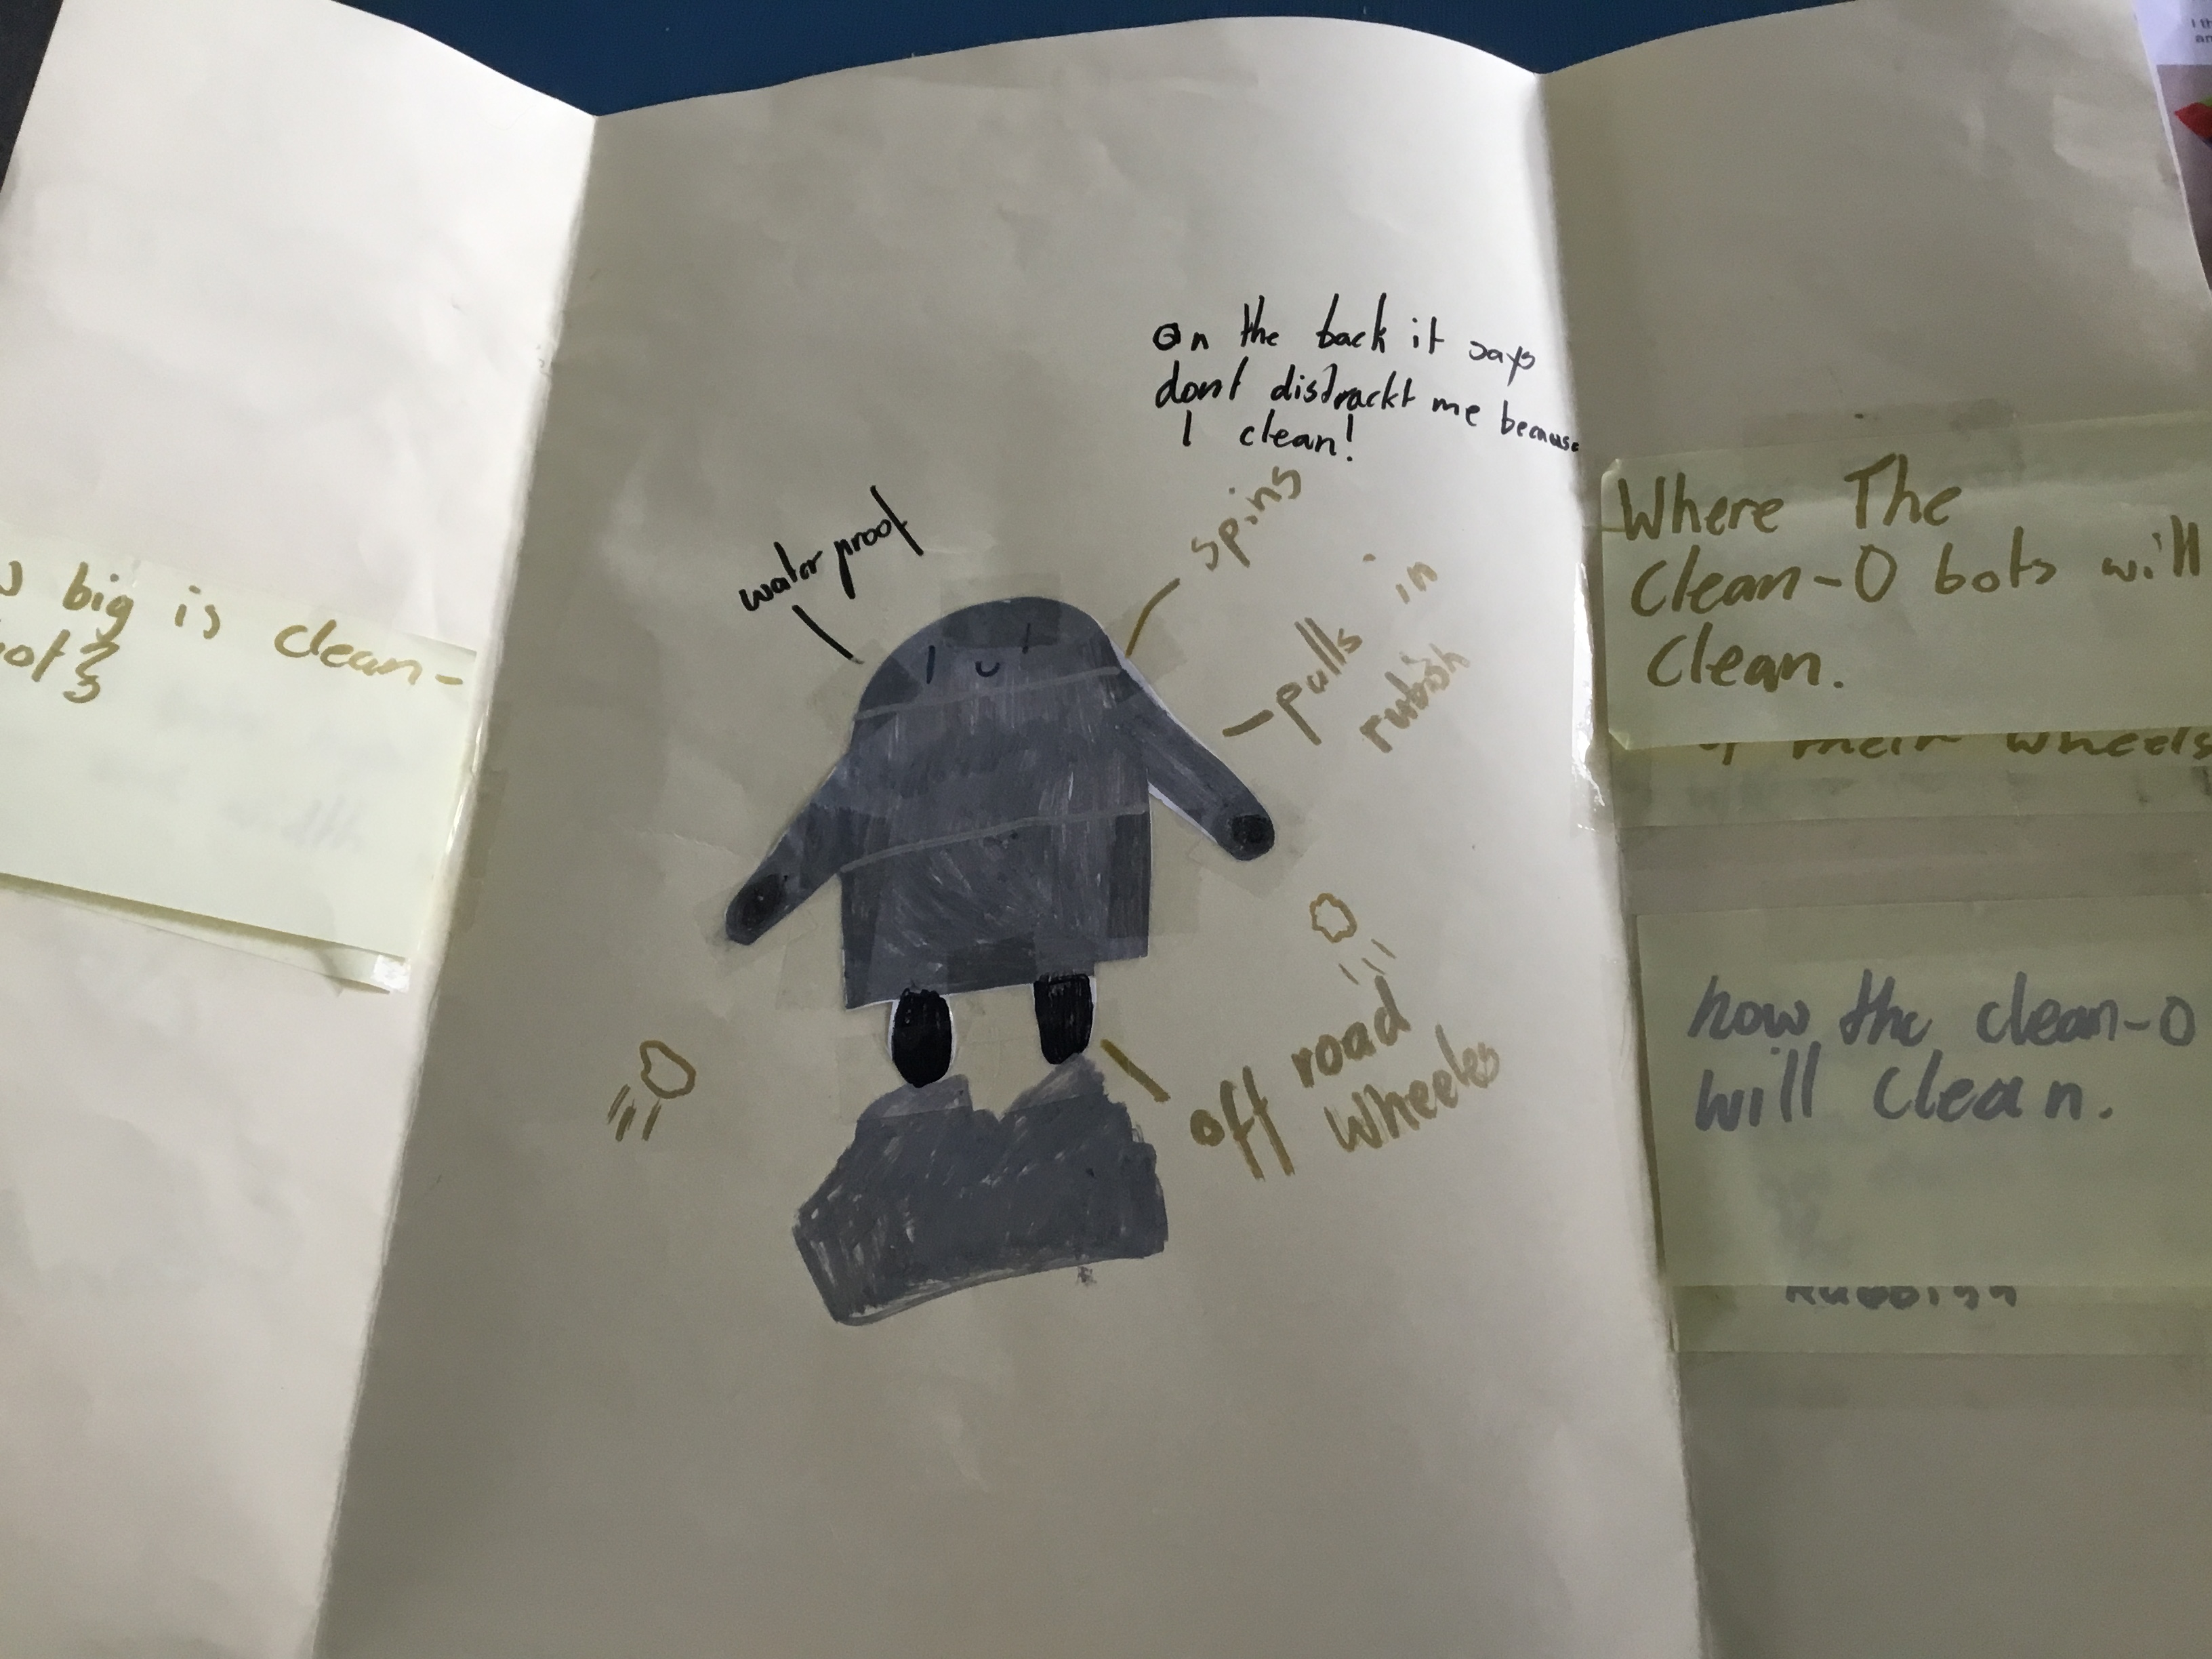 big is clean-
On the back it says
dont distrackt me because
I clean!
water proof
spins
pulls in
rubish
off road
wheeles
Where The
Clean-O bots will
Clean.
their wheels
how the clean-O
will clean.